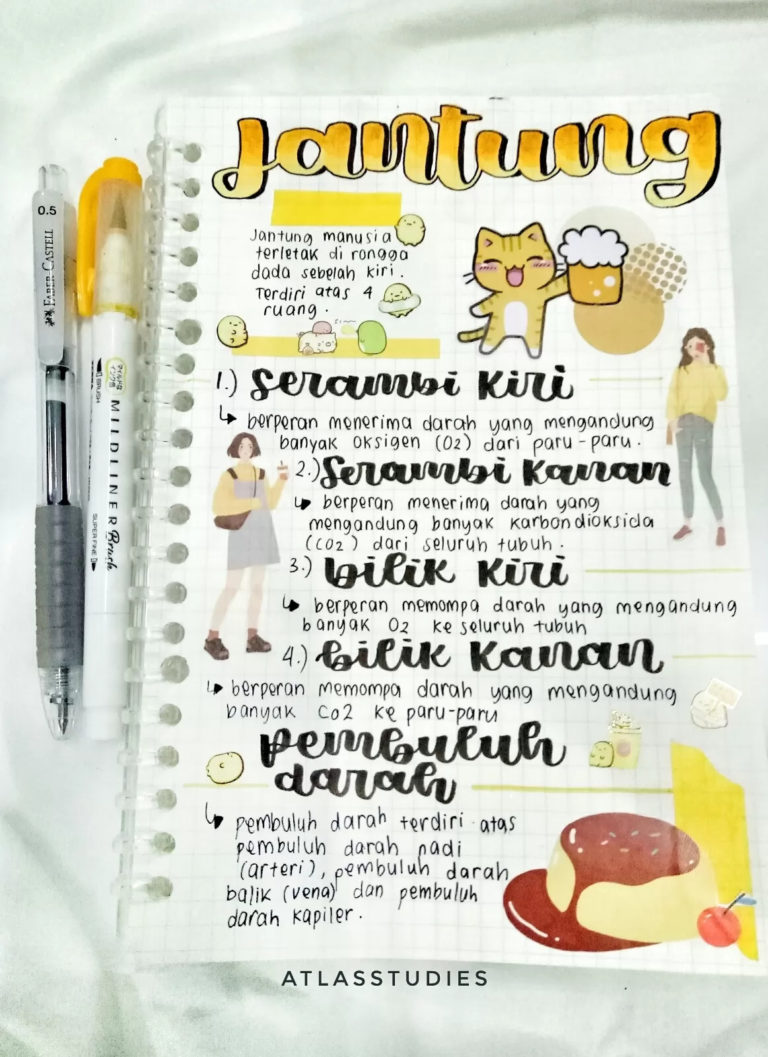 Jantung
Jantung manusia
terletak di rongga
dada sebelah kiri.
Terdiri atas 4
ruang.
1.) Serambi Kiri
↳ berperan menerima darah yang mengandung
banyak oksigen (O2) dari paru-paru.
2.) Serambi Kanan
↳ berperan menerima darah yang
mengandung banyak karbondioksida
(CO2) dari seluruh tubuh.
3.) bilik Kiri
↳ berperan memompa darah yang mengandung
banyak O2 ke seluruh tubuh
4.) bilik Kanan
↳ berperan memompa darah yang mengandung
banyak CO2 ke paru-paru
pembuluh
darah
↳ pembuluh darah terdiri atas
pembuluh darah nadi
(arteri), pembuluh darah
balik (vena) dan pembuluh
darah kapiler.
ATLASSTUDIES
0.5
FABER-CASTELL
BRUSH
MILDLINER Brush
SUPER FINE